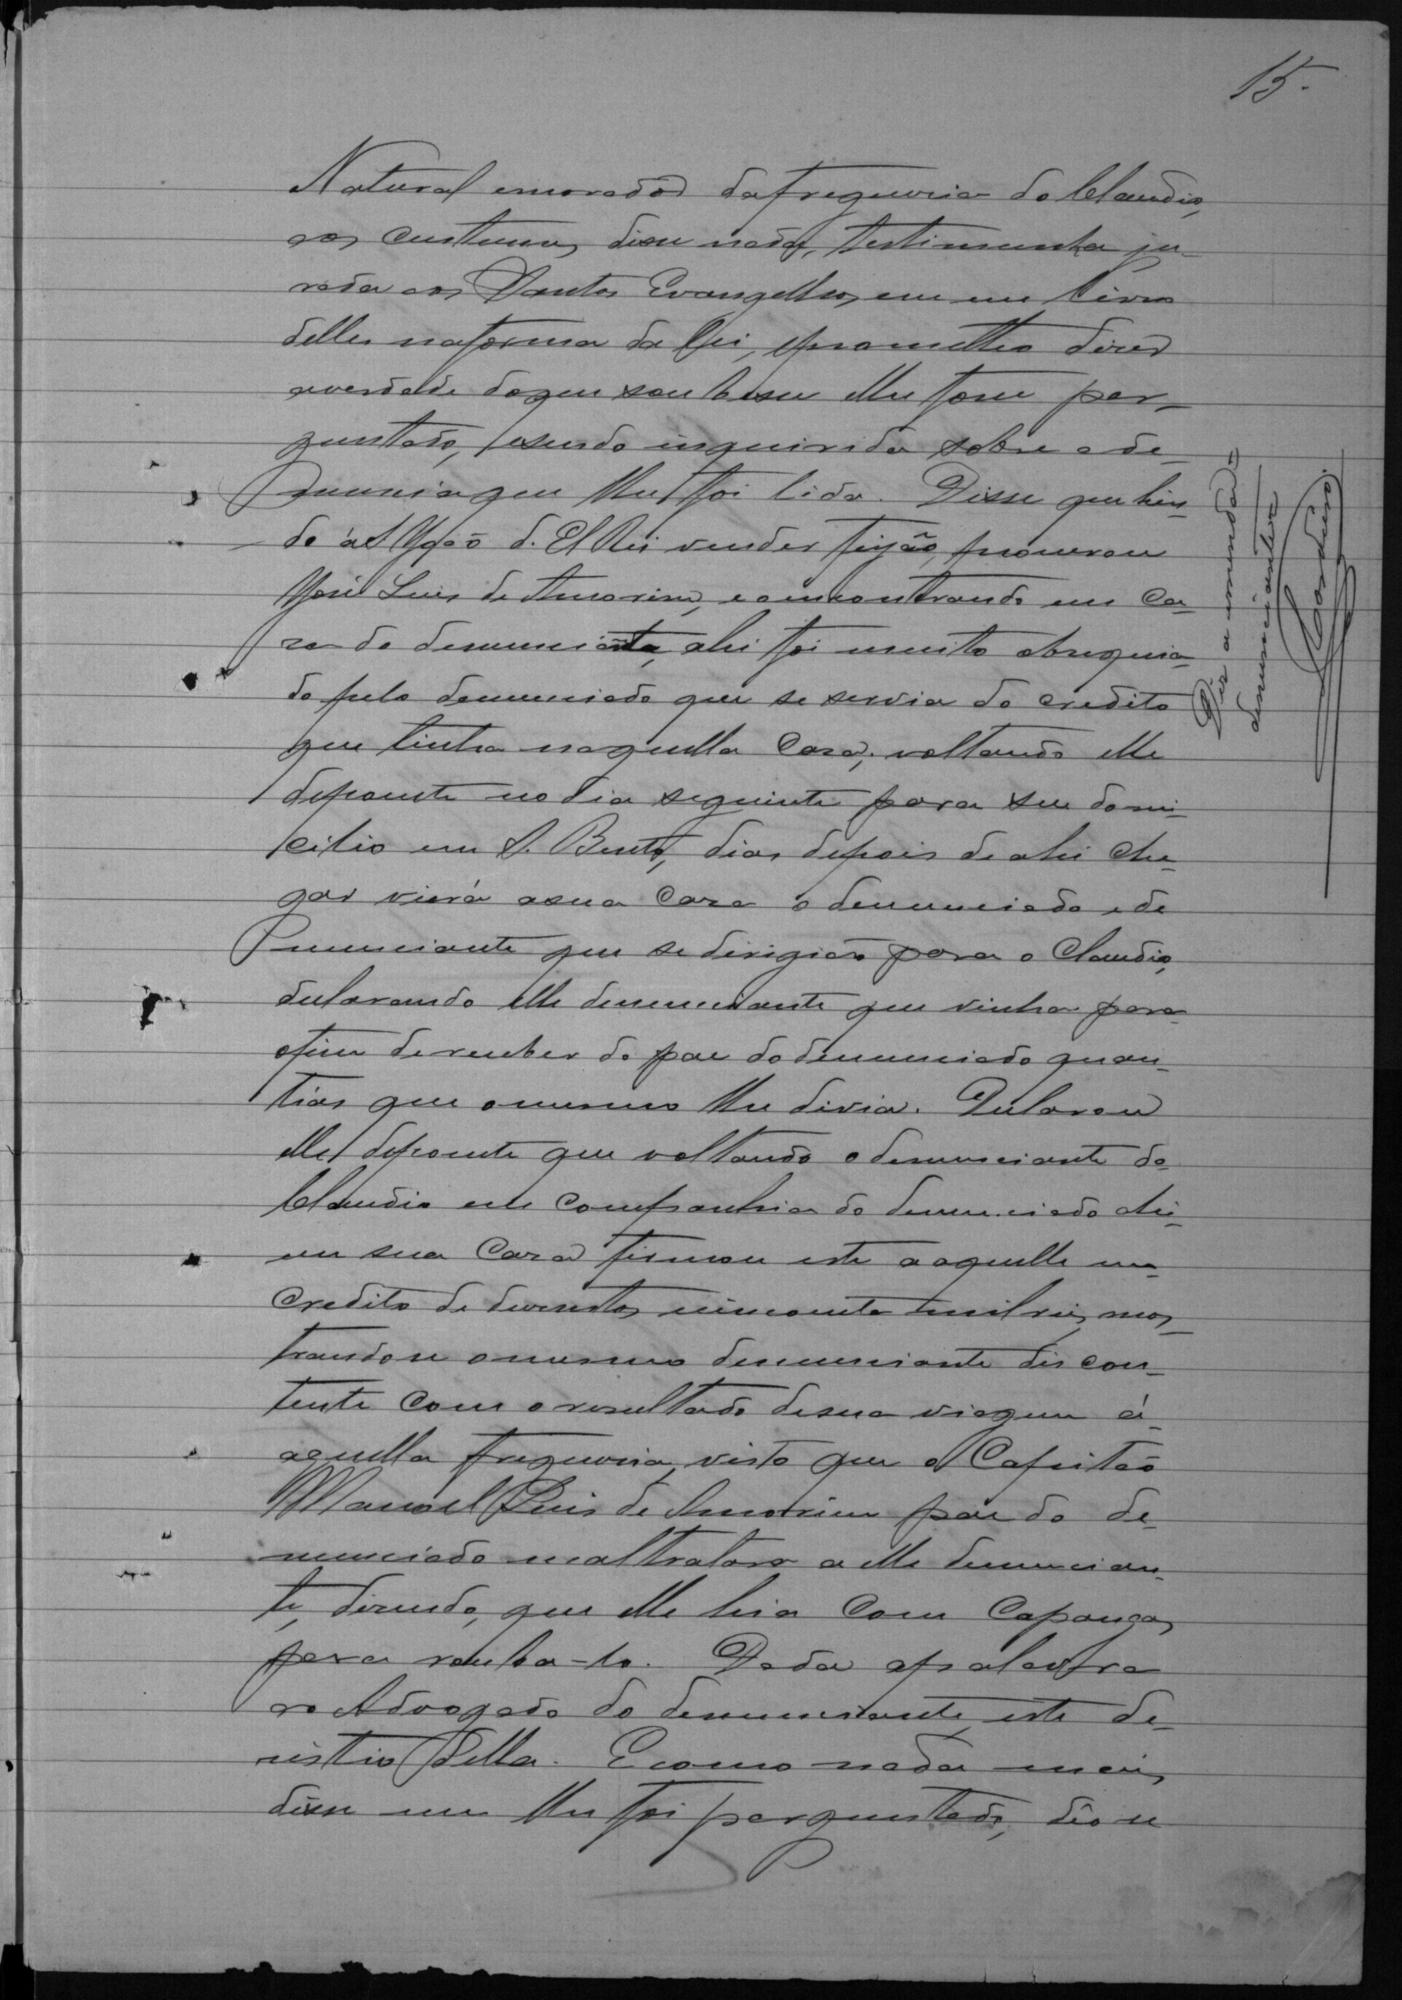 15.
Natural emorador dafreguesia do Claudio,
aos custumes disse nada, testimunha ju-
rada aos Santos Evangelhos em um livro
delles naforma da lei, eprometteo dizer
averdade doque soubesse elhe fosse per-
guntado, esendo inquirida sobre a de-
nuncia que lhe foi lida. Disse que hin-
do á S. João d. El Rei vender feijão, procurou
José Luis de Amorim, eoencontrando em Ca-
za do denunciante, ahi foi muito obzequia-
do pelo denunciado que se servia do credito
que tinha naquella Caza, voltando elle
depoente no dia seguinte para seu domi-
cilio em S. Bento, dias depois de ahi che-
gar vierá asua Caza o denunciado e de-
nunciante que se dirigião para o Claudio,
declarando elle denunciante que vinha para
ofim de receber do pae dodenunciado quan-
tias que omesmo lhe divia. Declarou
elle depoente que voltando odenunciante do
Claudio em Companhia do denunciado ahi
em sua Caza firmou este a aquelle um
Credito de duzentos cincoenta milreis, mos-
trandose omesmo denunciante discon-
tente com oresultado desua viagem á
aquella freguesia, visto que o Capitão
Manoel Luis de Amorim pae do de-
nunciado maltratara a elle denuncian-
te, dizendo, que elle hia Com Capangas
para rouba-lo. Dada apalavra
ao Advogado do denunciante, este de-
sistio della. Ecomo nada mais
disse nem lhe foi perguntado, déo se
Diz a emenda =
denunciante
Cordeiro